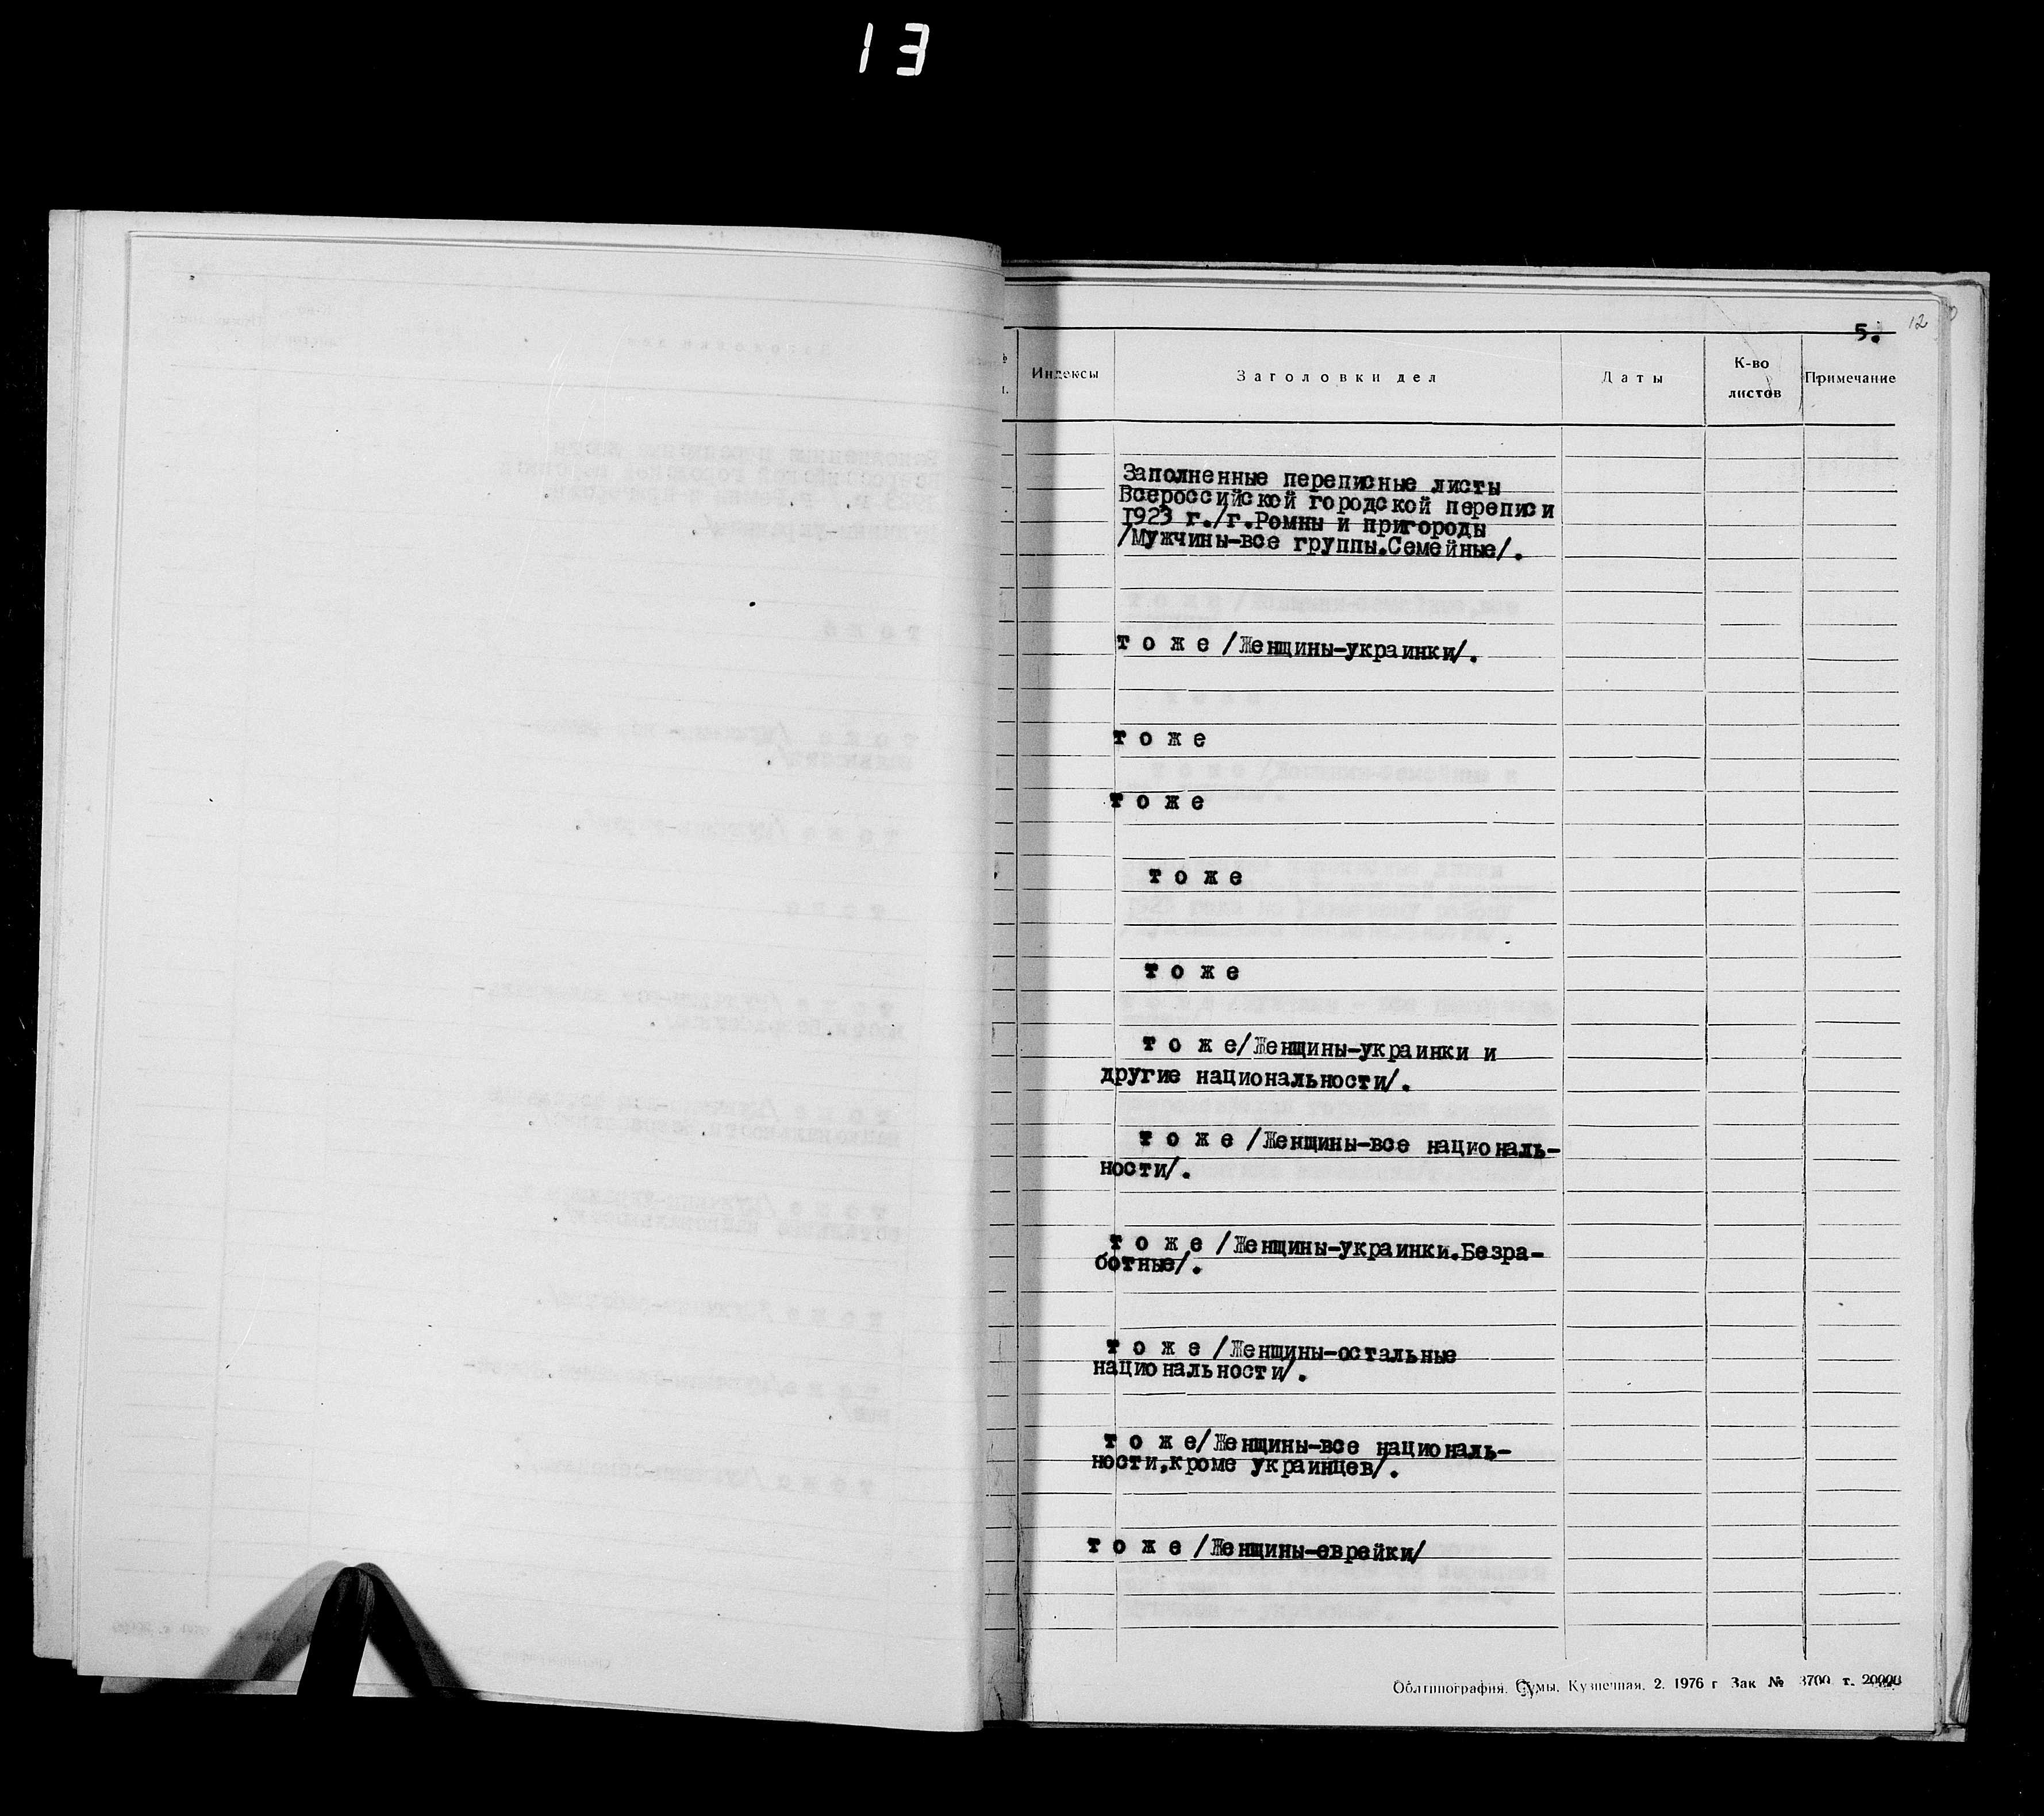 13
5.
12
Индексы
Заголовки дел
Даты
К-во листов
Примечание
Заполненные переписные листы
Всероссийской городской переписи
1923 г./г.Ромны и пригороды
/Мужчины-все группы.Семейные/.
т о ж е /Женщины-украинки/.
т о ж е
т о ж е
т о ж е
т о ж е
т о ж е/Женщины-украинки и
другие национальности/.
т о ж е /Женщины-все националь-
ности/.
т о ж е /Женщины-украинки.Безра-
ботные/.
т о ж е /Женщины-остальные
национальности/.
т о ж е/Женщины-все националь-
ности,кроме украинцев/.
т о ж е /Женщины-еврейки/
Облтипография. Сумы, Кузнечная, 2. 1976 г Зак № 3700 т. 20000